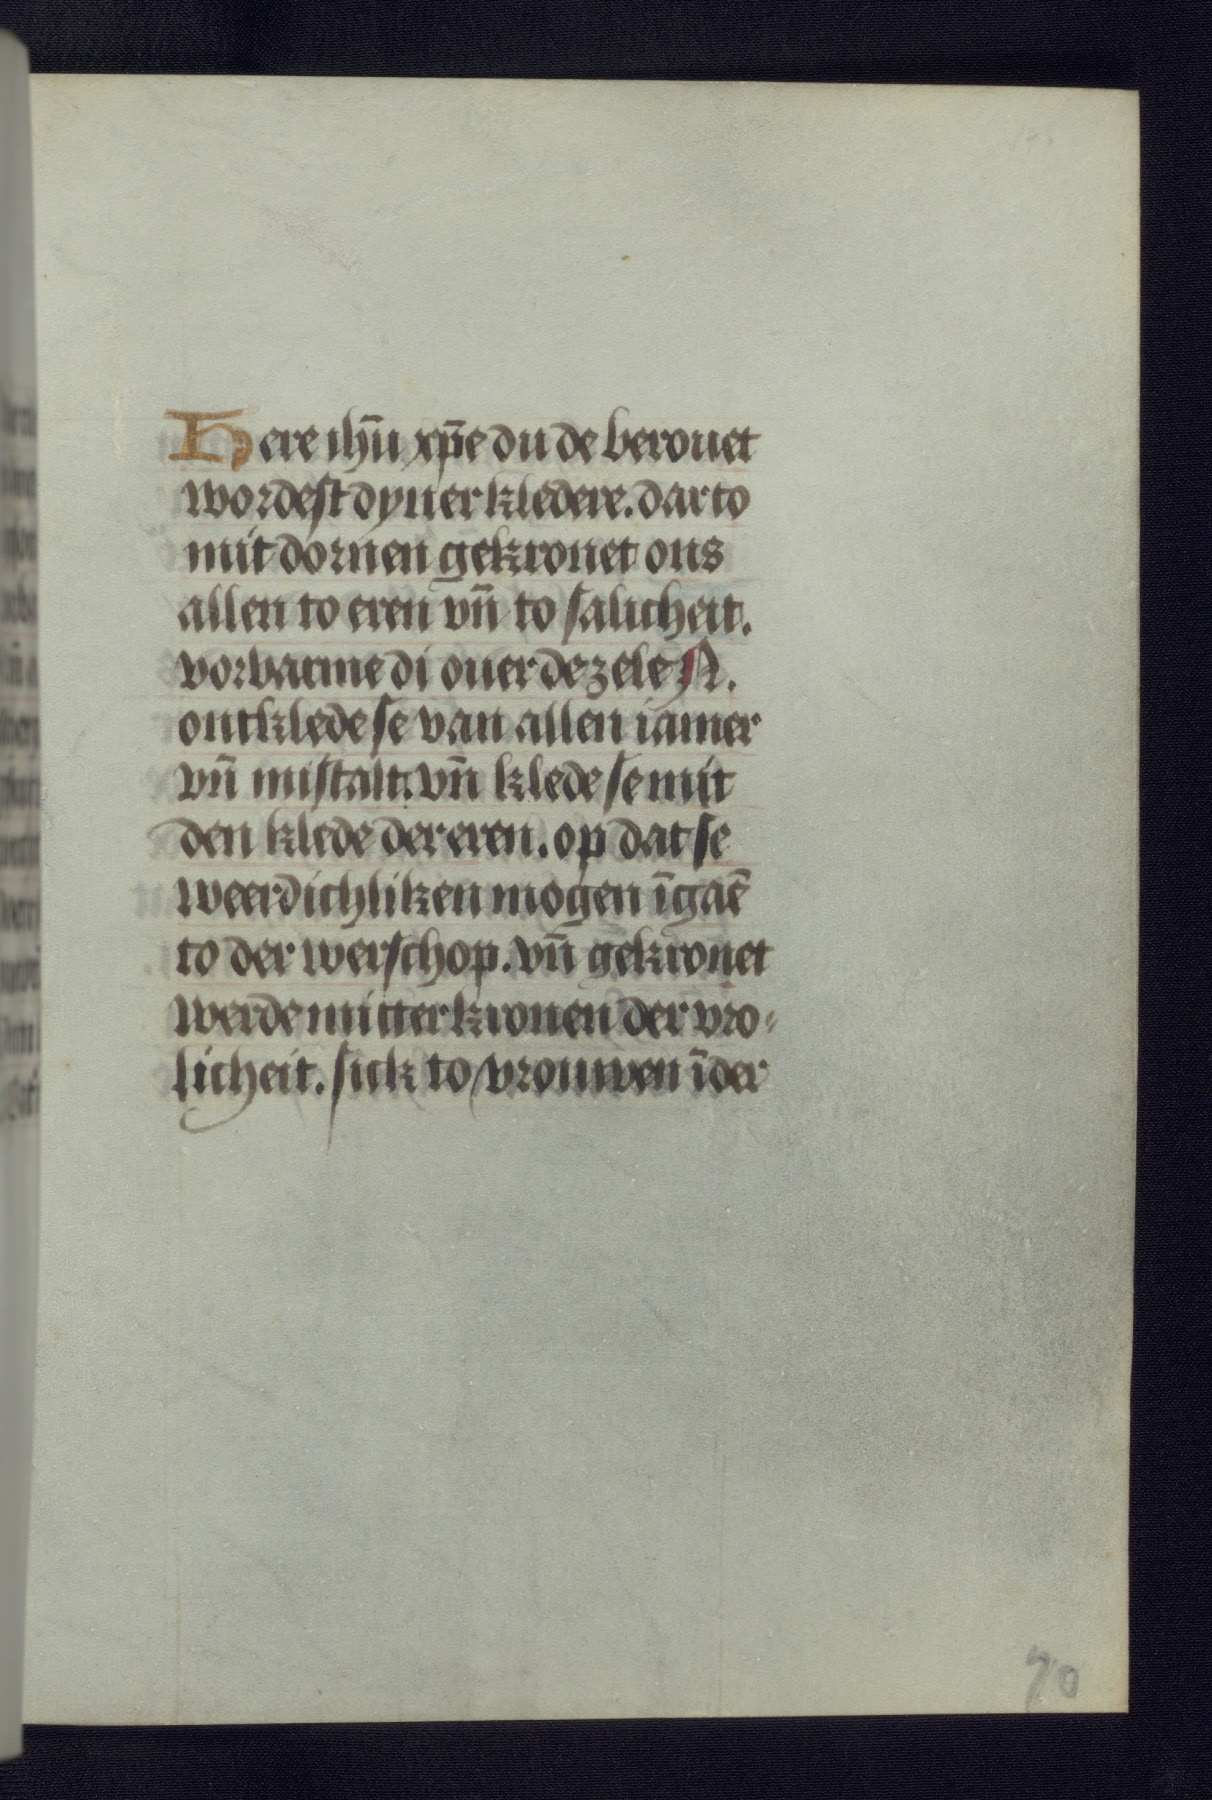 Here ihū xp̄e du de berouet
wordest dyner kledere. dar to
mit dornen gekronet ons
allen to eren vn̄ to salicheit.
vorbarme di ouer de zele N.
ontklede se van allen iamer
vn̄ mistalt. vn̄ klede se mit
den klede der eren. op dat se
weerdichliken mogen īgaē
to der werschop. vn̄ gekronet
werde mitter kronen der vro-
licheit. sick to vrouwen īder
70